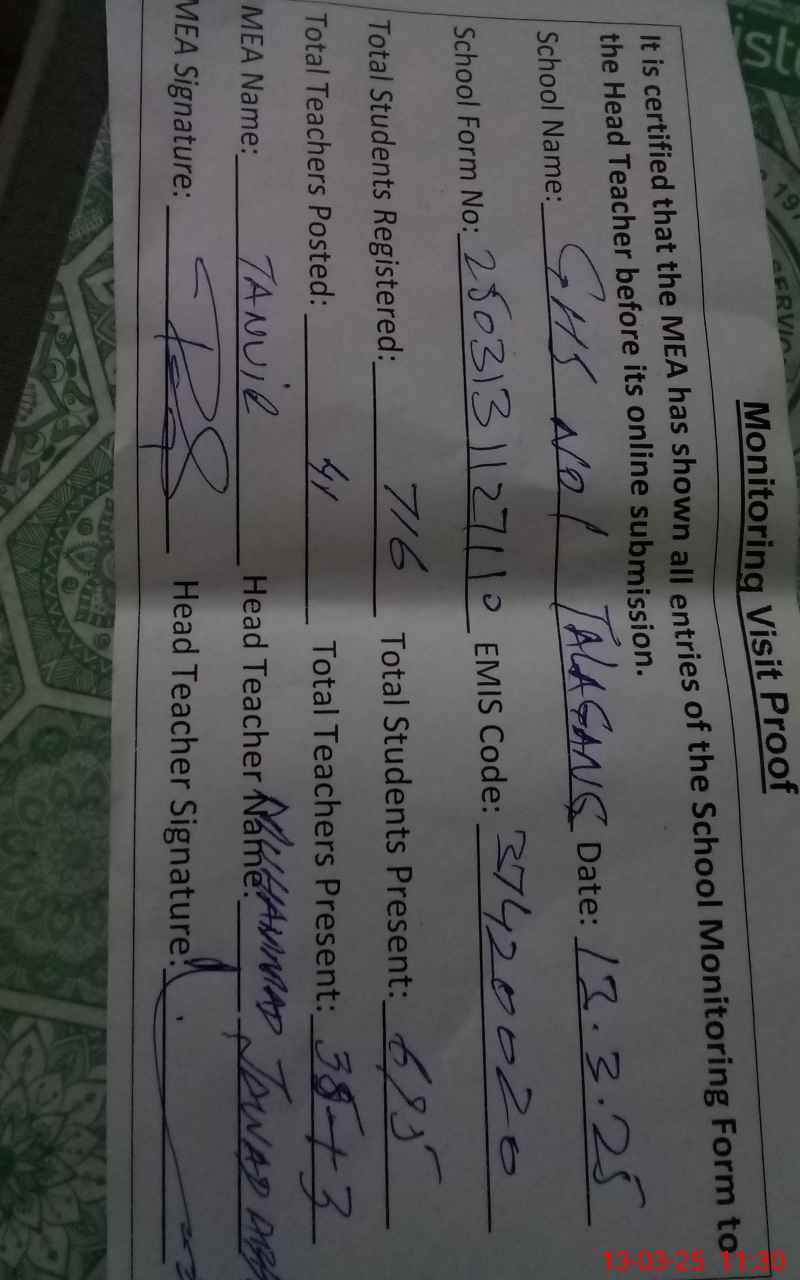 Monitoring Visit Proof
It is certified that the MEA has shown all entries of the School Monitoring Form to
the Head Teacher before its online submission.
School Name: GHS No 1 TALAGANG Date: 13.3.25
School Form No: EMIS Code: 37420020
Total Students Registered: 716 Total Students Present: 695
Total Teachers Posted: 41 Total Teachers Present: 38+3
MEA Name: TANVIR Head Teacher Name: MUHAMMAD JAWAD
MEA Signature: Head Teacher Signature:
13-03-25 11:30